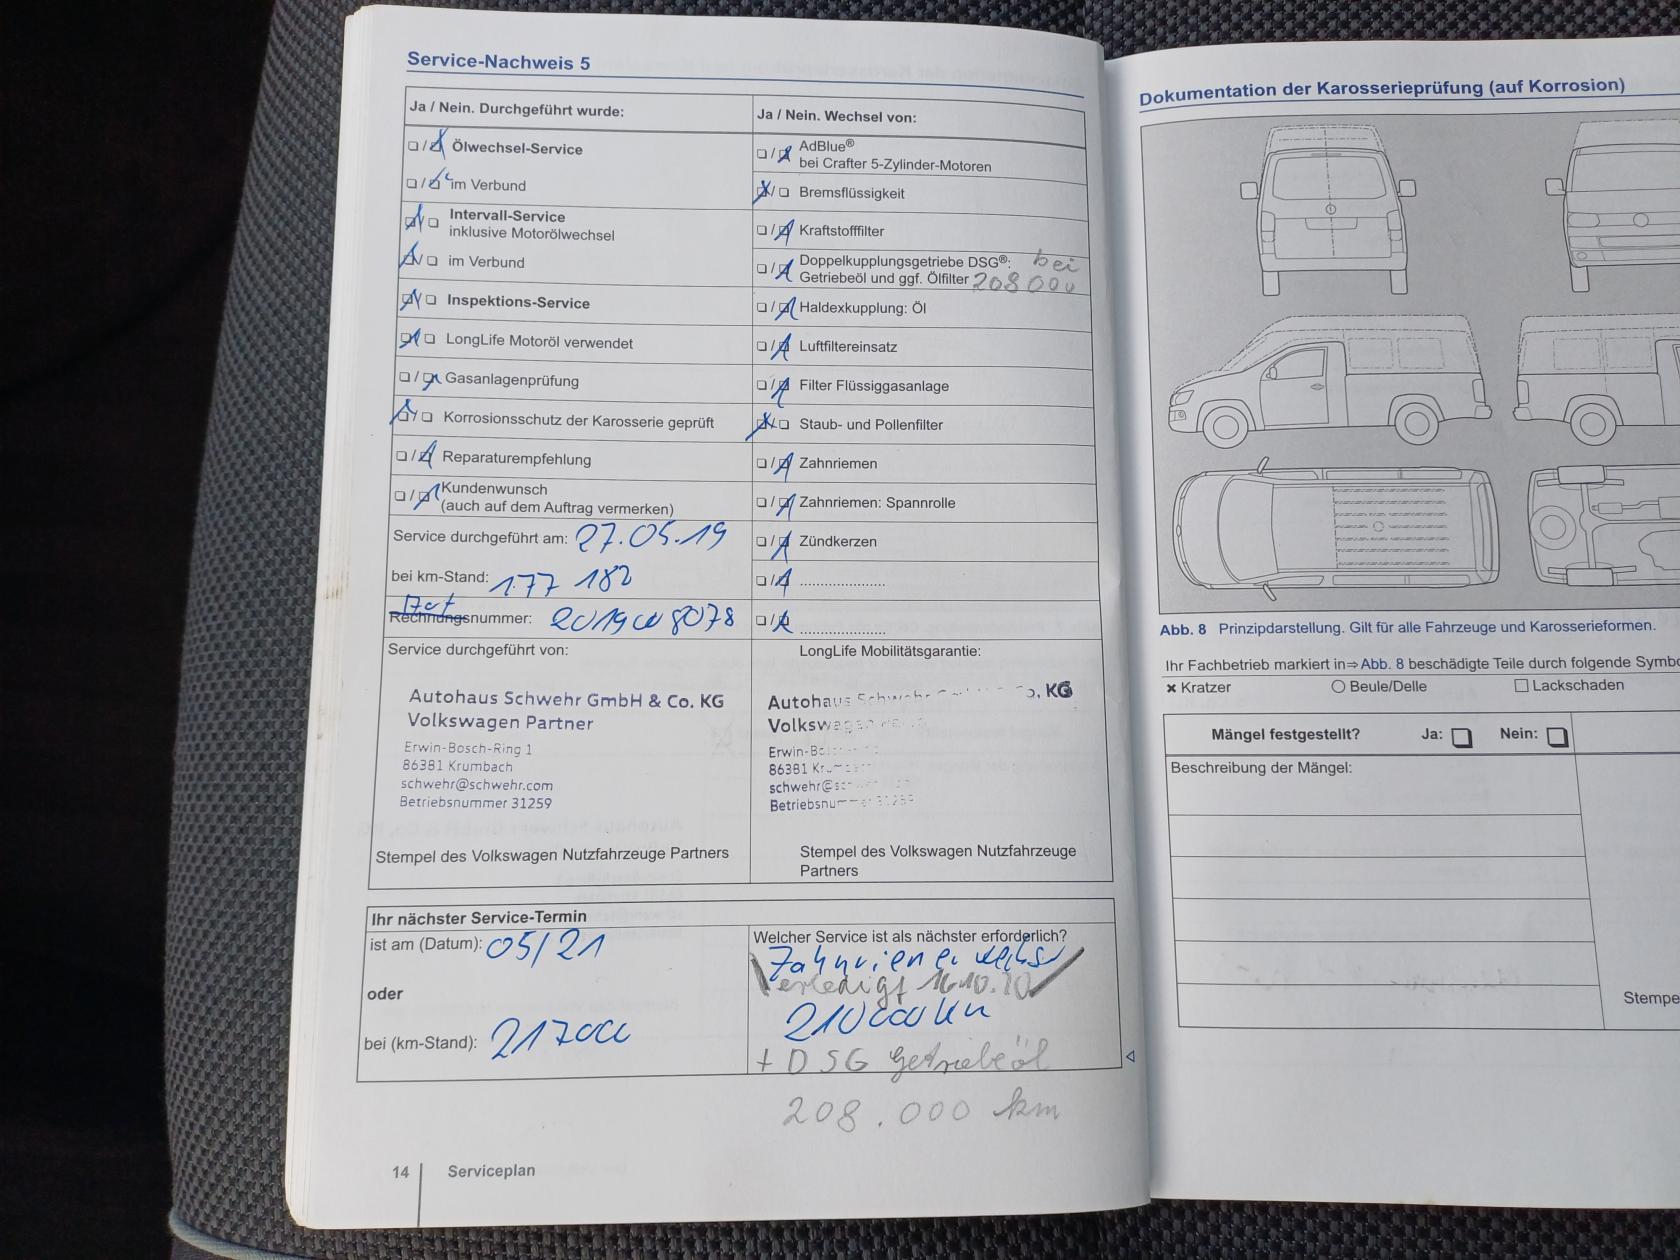 Service-Nachweis 5
Ja / Nein. Durchgeführt wurde:
Ölwechsel-Service
im Verbund
Intervall-Service
inklusive Motorölwechsel
im Verbund
Inspektions-Service
LongLife Motoröl verwendet
Gasanlagenprüfung
Korrosionsschutz der Karosserie geprüft
Reparaturempfehlung
Kundenwunsch
(auch auf dem Auftrag vermerken)
Service durchgeführt am: 27.05.19
bei km-Stand: 177 182
Rechnungsnummer:
Service durchgeführt von:
Autohaus Schwehr GmbH & Co. KG
Volkswagen Partner
Erwin-Bosch-Ring 1
86381 Krumbach
schwehr@schwehr.com
Betriebsnummer 31259
Stempel des Volkswagen Nutzfahrzeuge Partners
Ja / Nein. Wechsel von:
AdBlue®
bei Crafter 5-Zylinder-Motoren
Bremsflüssigkeit
Kraftstofffilter
Doppelkupplungsgetriebe DSG®: bei
Getriebeöl und ggf. Ölfilter 208 000
Haldexkupplung: Öl
Luftfiltereinsatz
Filter Flüssiggasanlage
Staub- und Pollenfilter
Zahnriemen
Zahnriemen: Spannrolle
Zündkerzen
LongLife Mobilitätsgarantie:
Autohaus Schwehr GmbH & Co. KG
Volkswagen
Erwin-Bosch-Ring 1
86381 Krumbach
schwehr@
Betriebsnummer 31259
Stempel des Volkswagen Nutzfahrzeuge
Partners
Ihr nächster Service-Termin
ist am (Datum): 05/21
oder
bei (km-Stand): 217000
Welcher Service ist als nächster erforderlich?
Zahnriemenwechsel
erledigt 16.10.20
210 000 km
+ DSG Getriebeöl
208.000 km
14 Serviceplan
Dokumentation der Karosserieprüfung (auf Korrosion)
Abb. 8 Prinzipdarstellung. Gilt für alle Fahrzeuge und Karosserieformen.
Ihr Fachbetrieb markiert in⇒Abb. 8 beschädigte Teile durch folgende Symbo
× Kratzer ○ Beule/Delle □ Lackschaden
Mängel festgestellt? Ja: Nein:
Beschreibung der Mängel:
Stempe